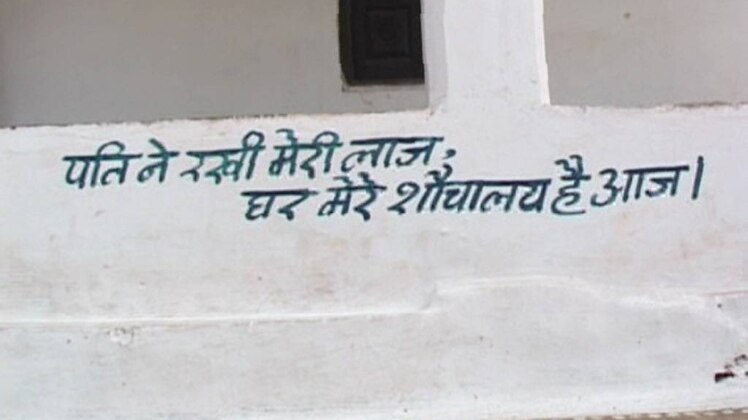 पति ने रखी मेरी लाज,
घर मेरे शौचालय है आज।